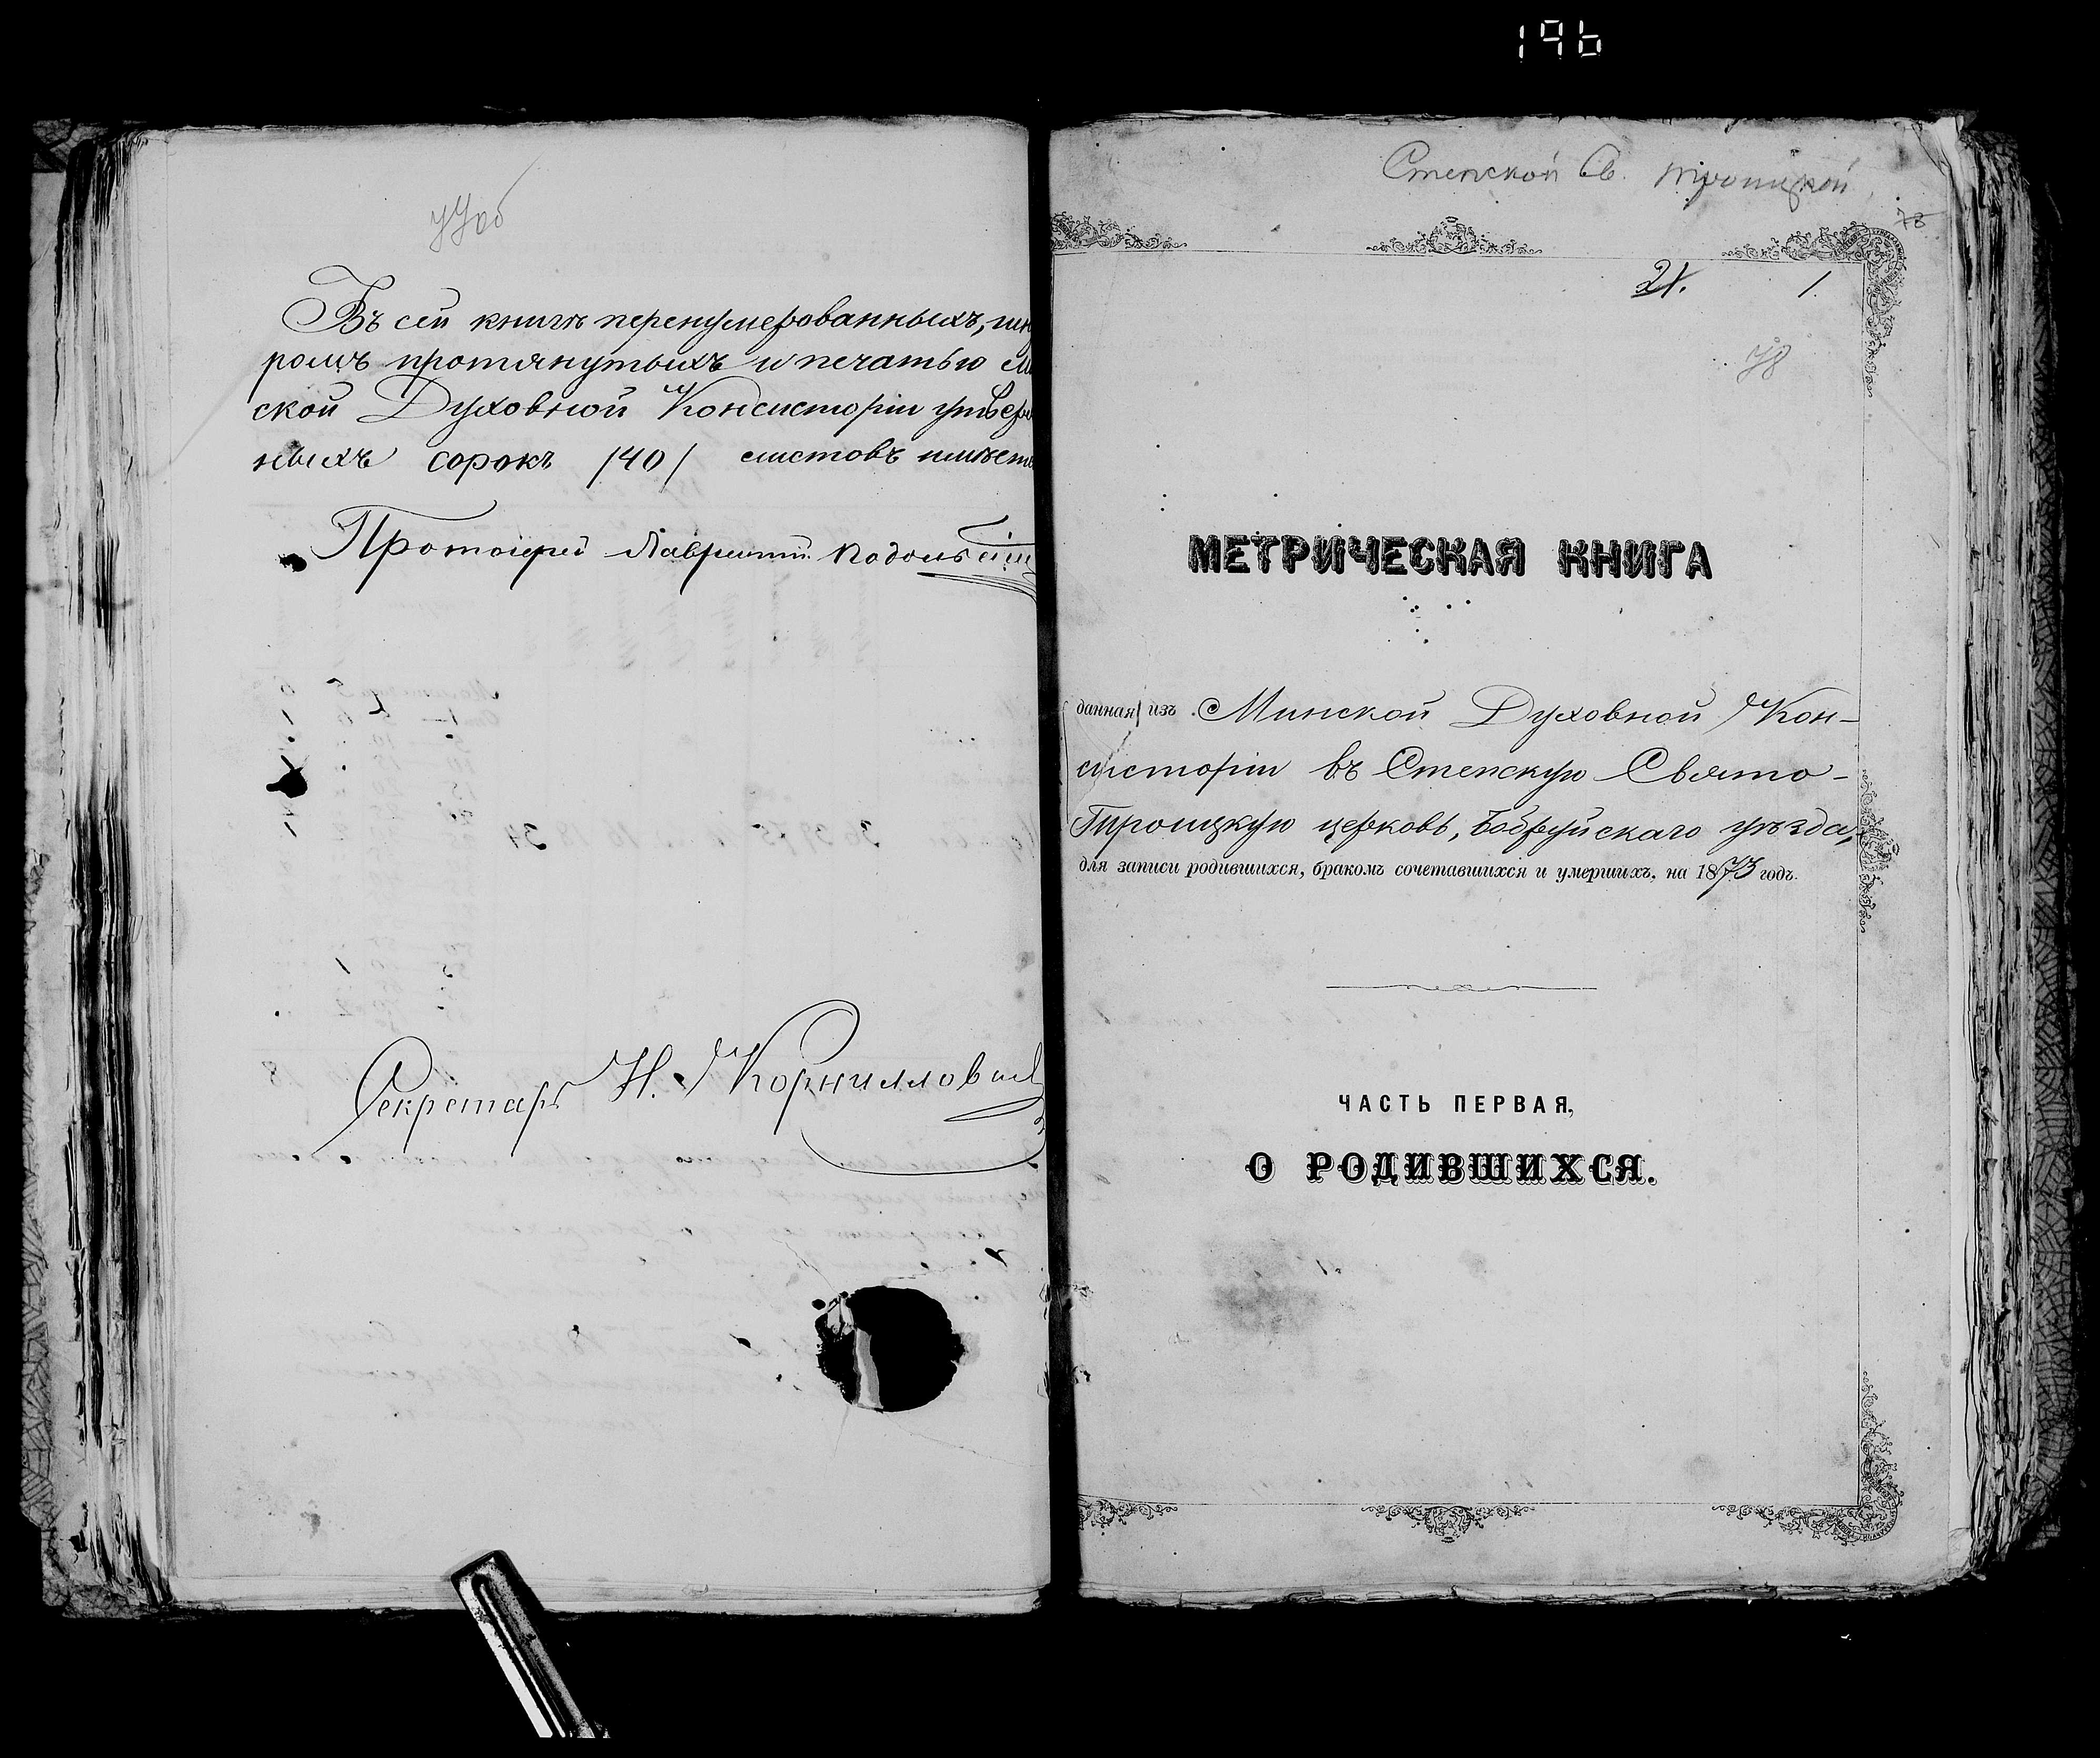 196
77об
Въ сей книгѣ перенумерованныхъ, шну
ромъ протянутыхъ и печатью Ми
ской Духовной Консисторіи утверж
ныхъ сорокъ /40/ листовъ имѣет
Протоіерей Лаврентій Подольскій
Секретарь Н. Корниллович
Степской Св. Троицкой
78
21. 1.
78
МЕТРИЧЕСКАЯ КНИГА
данная изъ Минской Духовной Кон-
систоріи въ Степскую Свято-
Троицкую церковь, Бобруйскаго уѣзда,
для записи родившихся, бракомъ сочетавшихся и умершихъ, на 1873 годъ.
ЧАСТЬ ПЕРВАЯ,
О РОДИВШИХСЯ.